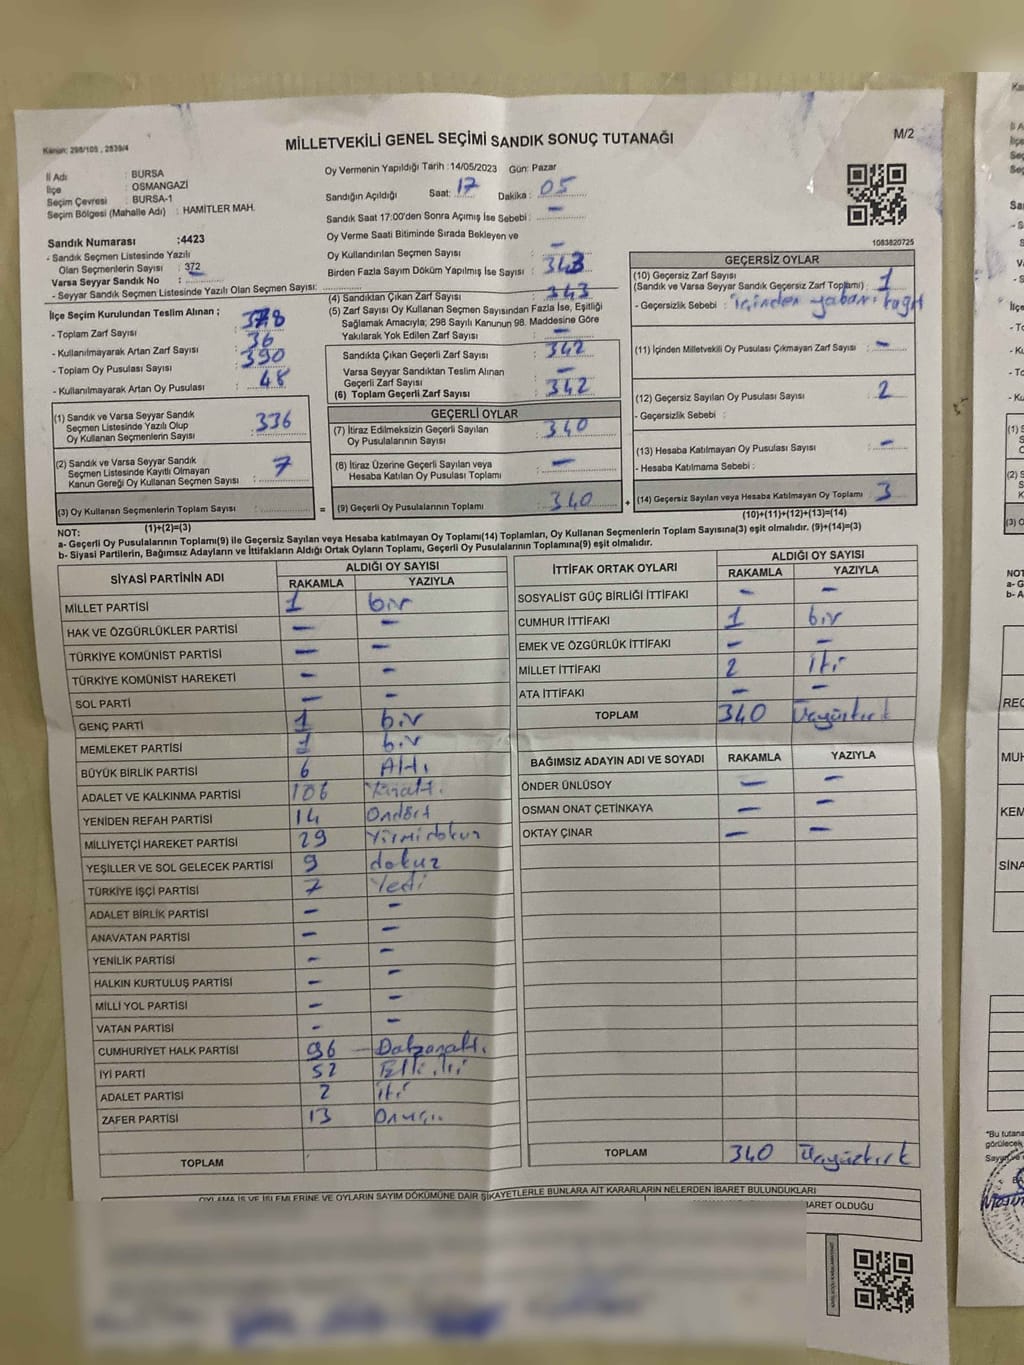 Kanun: 298/105 , 2839/4
MİLLETVEKİLİ GENEL SEÇİMİ SANDIK SONUÇ TUTANAĞI
M/2
İl Adı : BURSA
İlçe : OSMANGAZİ
Seçim Çevresi : BURSA-1
Seçim Bölgesi (Mahalle Adı) : HAMİTLER MAH.
Oy Vermenin Yapıldığı Tarih :14/05/2023 Gün: Pazar
Sandığın Açıldığı Saat: 17 Dakika : 05
Sandık Saat 17:00'den Sonra Açımış İse Sebebi : –
Oy Verme Saati Bitiminde Sırada Bekleyen ve
Oy Kullandırılan Seçmen Sayısı : –
Birden Fazla Sayım Döküm Yapılmış İse Sayısı : 343
1083820725
Sandık Numarası :4423
- Sandık Seçmen Listesinde Yazılı
Olan Seçmenlerin Sayısı : 372
Varsa Seyyar Sandık No : –
- Seyyar Sandık Seçmen Listesinde Yazılı Olan Seçmen Sayısı:
İlçe Seçim Kurulundan Teslim Alınan ;
- Toplam Zarf Sayısı : 378
- Kullanılmayarak Artan Zarf Sayısı : 36
- Toplam Oy Pusulası Sayısı : 390
- Kullanılmayarak Artan Oy Pusulası : 48
(1) Sandık ve Varsa Seyyar Sandık
Seçmen Listesinde Yazılı Olup
Oy Kullanan Seçmenlerin Sayısı : 336
(2) Sandık ve Varsa Seyyar Sandık
Seçmen Listesinde Kayıtlı Olmayan
Kanun Gereği Oy Kullanan Seçmen Sayısı : 7
(3) Oy Kullanan Seçmenlerin Toplam Sayısı :
(1)+(2)=(3)
(4) Sandıktan Çıkan Zarf Sayısı : 343
(5) Zarf Sayısı Oy Kullanan Seçmen Sayısından Fazla İse, Eşitliği
Sağlamak Amacıyla; 298 Sayılı Kanunun 98. Maddesine Göre
Yakılarak Yok Edilen Zarf Sayısı : –
Sandıkta Çıkan Geçerli Zarf Sayısı : 342
Varsa Seyyar Sandıktan Teslim Alınan
Geçerli Zarf Sayısı : –
(6) Toplam Geçerli Zarf Sayısı : 342
GEÇERLİ OYLAR
(7) İtiraz Edilmeksizin Geçerli Sayılan
Oy Pusulalarının Sayısı : 340
(8) İtiraz Üzerine Geçerli Sayılan veya
Hesaba Katılan Oy Pusulası Toplamı : –
= (9) Geçerli Oy Pusulalarının Toplamı : 340 +
GEÇERSİZ OYLAR
(10) Geçersiz Zarf Sayısı
(Sandık ve Varsa Seyyar Sandık Geçersiz Zarf Toplamı) : 1
- Geçersizlik Sebebi : içinden yabancı kağıt
(11) İçinden Milletvekili Oy Pusulası Çıkmayan Zarf Sayısı : –
(12) Geçersiz Sayılan Oy Pusulası Sayısı : 2
- Geçersizlik Sebebi :
(13) Hesaba Katılmayan Oy Pusulası Sayısı : –
- Hesaba Katılmama Sebebi :
(14) Geçersiz Sayılan veya Hesaba Katılmayan Oy Toplamı : 3
(10)+(11)+(12)+(13)=(14)
NOT:
a- Geçerli Oy Pusulalarının Toplamı(9) ile Geçersiz Sayılan veya Hesaba katılmayan Oy Toplamı(14) Toplamları, Oy Kullanan Seçmenlerin Toplam Sayısına(3) eşit olmalıdır. (9)+(14)=(3)
b- Siyasi Partilerin, Bağımsız Adayların ve İttifakların Aldığı Ortak Oyların Toplamı, Geçerli Oy Pusulalarının Toplamına(9) eşit olmalıdır.
SİYASİ PARTİNİN ADI ALDIĞI OY SAYISI
RAKAMLA YAZIYLA
MİLLET PARTİSİ 1 bir
HAK VE ÖZGÜRLÜKLER PARTİSİ – –
TÜRKİYE KOMÜNİST PARTİSİ – –
TÜRKİYE KOMÜNİST HAREKETİ – –
SOL PARTİ – –
GENÇ PARTİ 1 bir
MEMLEKET PARTİSİ 1 bir
BÜYÜK BİRLİK PARTİSİ 6 Altı
ADALET VE KALKINMA PARTİSİ 106 Yüzaltı
YENİDEN REFAH PARTİSİ 14 Ondört
MİLLİYETÇİ HAREKET PARTİSİ 29 Yirmidokuz
YEŞİLLER VE SOL GELECEK PARTİSİ 9 dokuz
TÜRKİYE İŞÇİ PARTİSİ 7 Yedi
ADALET BİRLİK PARTİSİ – –
ANAVATAN PARTİSİ – –
YENİLİK PARTİSİ – –
HALKIN KURTULUŞ PARTİSİ – –
MİLLİ YOL PARTİSİ – –
VATAN PARTİSİ – –
CUMHURİYET HALK PARTİSİ 96 – Doksanaltı
İYİ PARTİ 52 Elli iki
ADALET PARTİSİ 2 iki
ZAFER PARTİSİ 13 Onüç
TOPLAM
İTTİFAK ORTAK OYLARI ALDIĞI OY SAYISI
RAKAMLA YAZIYLA
SOSYALİST GÜÇ BİRLİĞİ İTTİFAKI – –
CUMHUR İTTİFAKI 1 bir
EMEK VE ÖZGÜRLÜK İTTİFAKI – –
MİLLET İTTİFAKI 2 iki
ATA İTTİFAKI – –
TOPLAM 340 Üçyüzkırk
BAĞIMSIZ ADAYIN ADI VE SOYADI RAKAMLA YAZIYLA
ÖNDER ÜNLÜSOY – –
OSMAN ONAT ÇETİNKAYA – –
OKTAY ÇINAR – –
TOPLAM 340 Üçyüzkırk
OYLAMA İŞ VE İŞLEMLERİNE VE OYLARIN SAYIM DÖKÜMÜNE DAİR ŞİKAYETLERLE BUNLARA AİT KARARLARIN NELERDEN İBARET BULUNDUKLARI
BARET OLDUĞU
REC
MUH
KEM
SİNA
*Bu tutana
görülecek